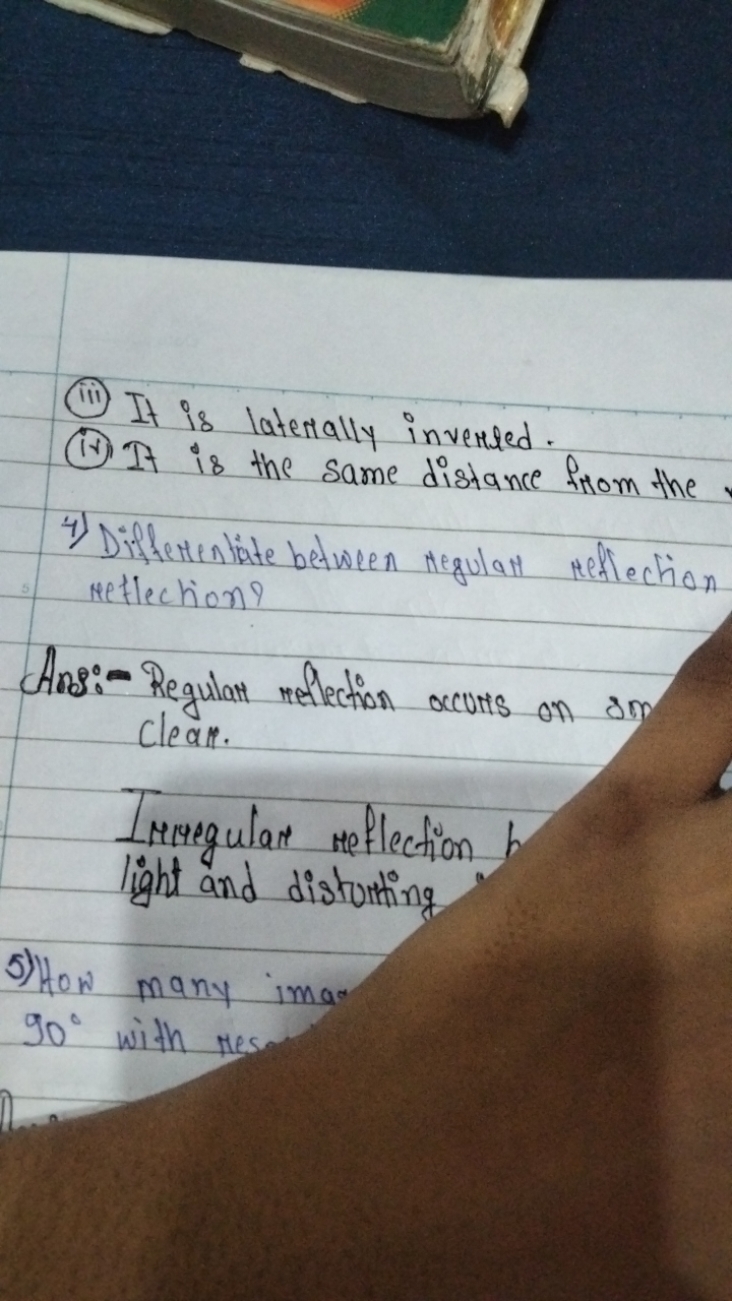 (iii) It is laterally inverted.
(iv) It is the same distance from the
4) Differentiate between regular reflection
reflection?
Ans:- Regular reflection occurs on
clear.
Irregular reflection
light and distorting
5) How many
90° with